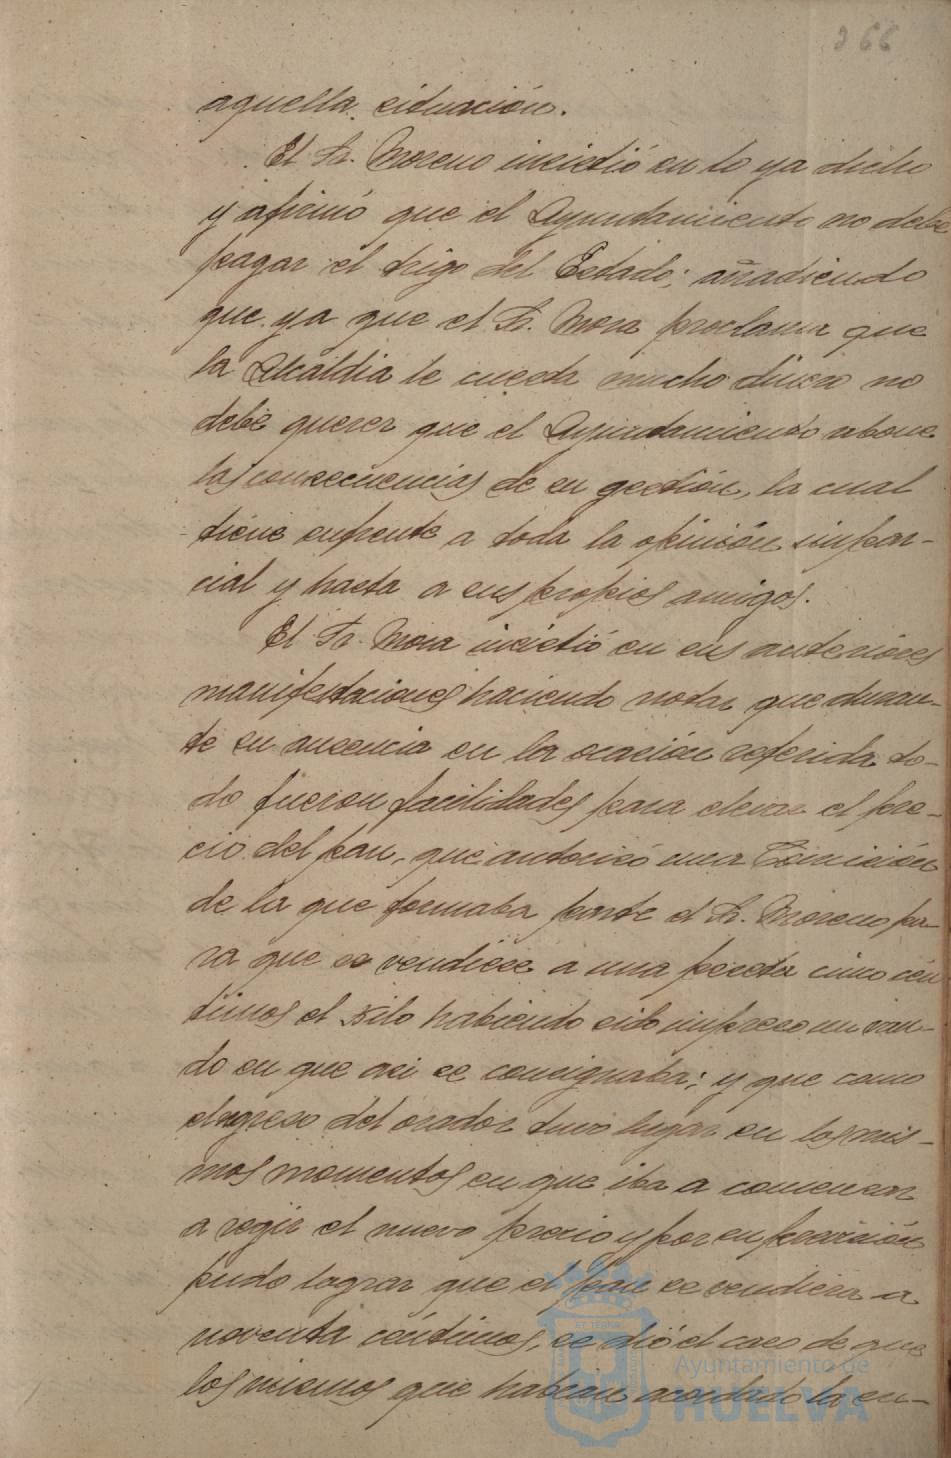 266
aquella situación.
El Sr. Moreno insistió en lo ya dicho
y afirmó que el Ayuntamiento no debe
pagar el trigo del Estado; añadiendo
que ya que el Sr. Mora proclama que
la Alcaldía le cuesta mucho dinero no
debe querer que el Ayuntamiento abone
las consecuencias de su gestión, la cual
tiene enfrente a toda la opinión impar-
cial y hasta a sus propios amigos.
El Sr. Mora insistió en sus anteriores
manifestaciones haciendo notar que duran-
te su ausencia en la ocasión referida to-
do fueron facilidades para elevar el pre-
cio del pan, que autorizó una Comisión
de la que formaba parte el Sr. Moreno pa-
ra que se vendiese a una peseta cinco cén
timos el kilo habiendo sido impreso un van-
do en que asi se consignaba; y que como
el regreso del orador tuvo lugar en los mis-
mos momentos en que iba a comenzar
a regir el nuevo precio y por su precisión
pudo lograr que el pan se vendiera a
noventa céntimos, se dió el caso de que
los mismos que habían acordado la su-
Ayuntamiento de
HUELVA